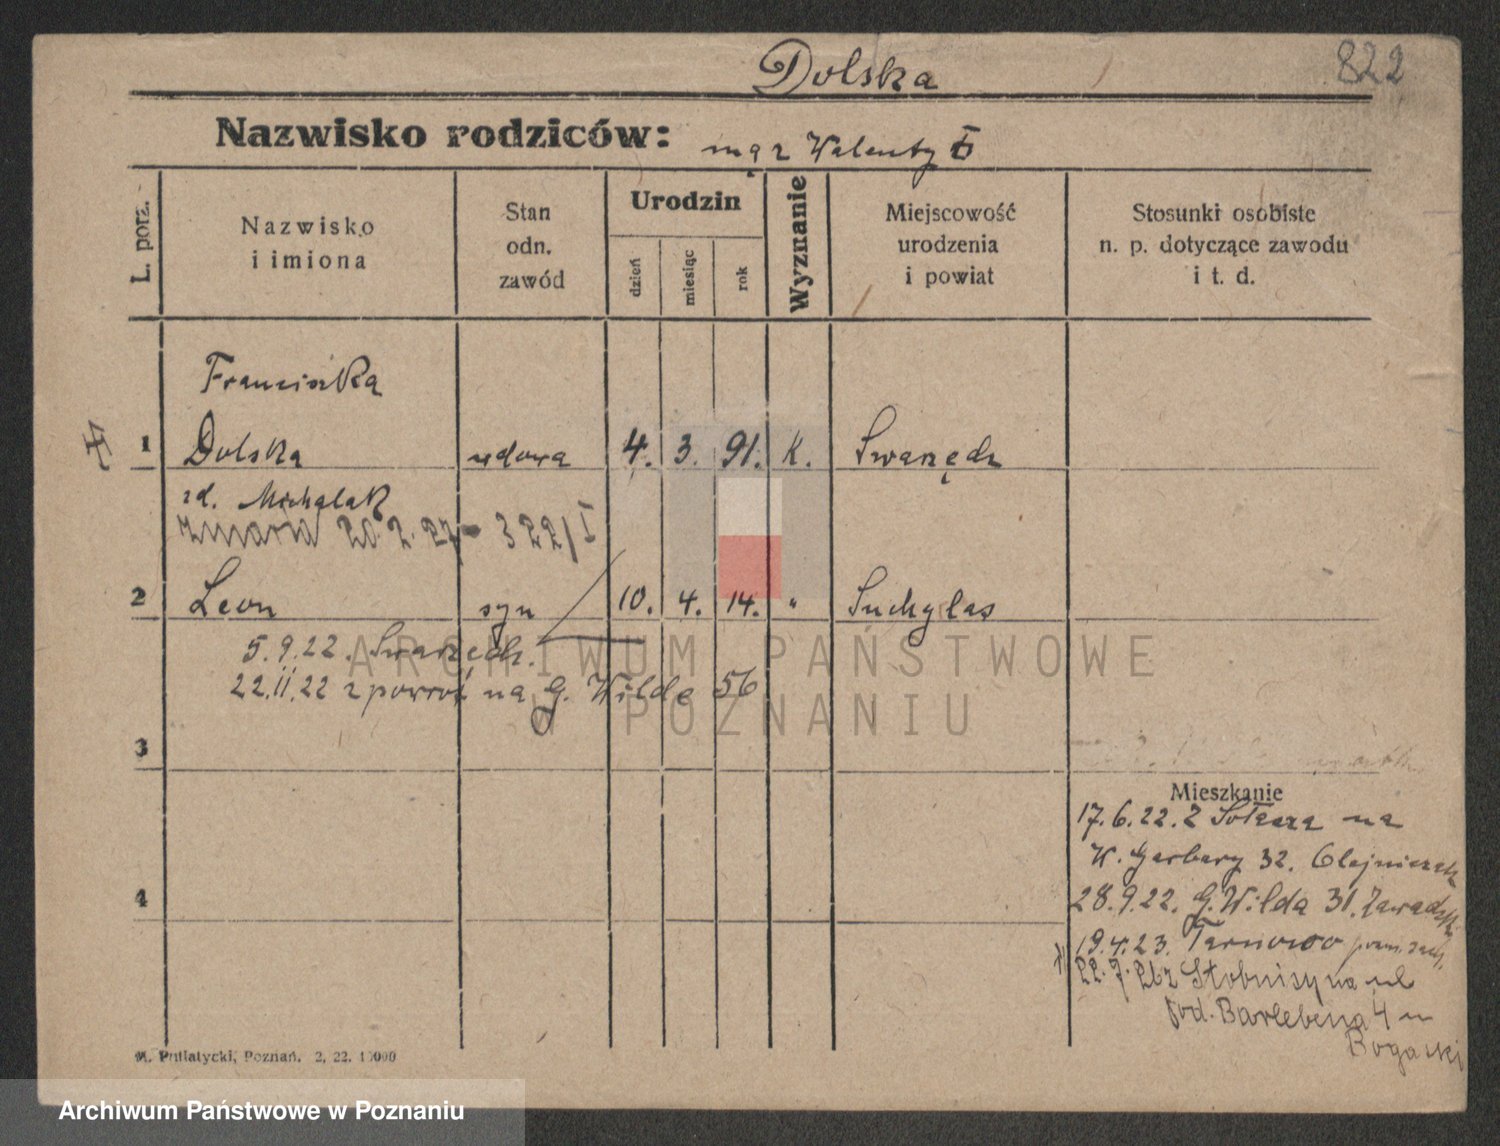 Dolska
822
Nazwisko rodziców: mąż Walenty
L. porz.
Nazwisko
i imiona
Stan
odn.
zawód
Urodzin
dzień
miesiąc
rok
Wyznanie
Miejscowość
urodzenia
i powiat
Stosunki osobiste
n. p. dotyczące zawodu
i t. d.
Franciszka
1 Dolska wdowa 4. 3. 91. K. Swarzędz
zd. Michalak
zmarła 20.2.27 - 322/I
2 Leon syn 10. 4. 14. " Suchylas
5.9.22. Swarzędz.
22.11.22 z powrot na G. Wilda 56
3
Mieszkanie
17.6.22. z Sołacza na
W. Garbary 32. Olejniczak
4
28.9.22. G. Wilda 31. Zawadzki
19.4.23. Tarnowo
22.7.26 z Stobnicy na ul
Bogacki
M. Putiatycki, Poznań. 2, 22. 10000
ARCHIWUM PAŃSTWOWE
W POZNANIU
Archiwum Państwowe w Poznaniu